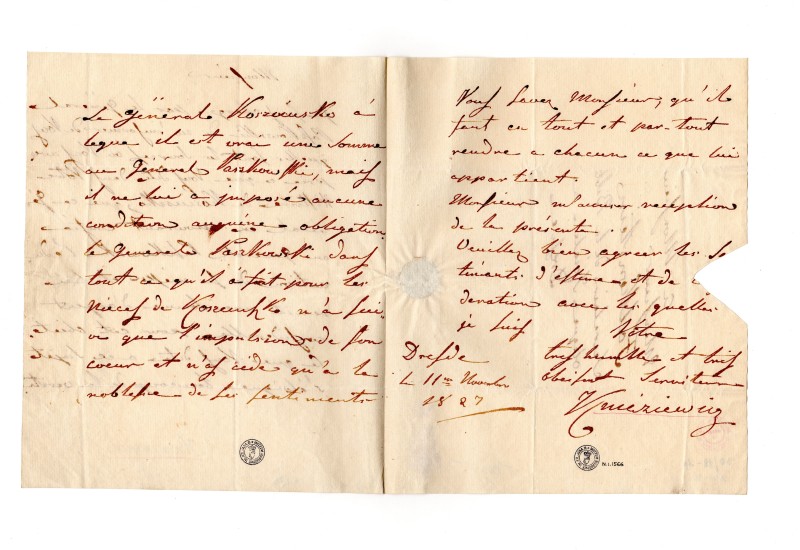 Le général Koszciusko à
legué il est vrai une somme
au Général Paszkowski, mais
il ne lui a imposé aucune
condition aucune obligation
le Generale Paszkowski dans
tout ce qu'il a fait pour les
Nieces de Koscuszko n'a sui
vi que l'impulsion de son
coeur et n'as cédé qu'à la
noblesse de ses sentiments
Vous savez Monsieur, qu'il
faut en tout et par-tout
rendre a chacun ce que lui
appartient.
Monsieur m'accuser reception
de la présente.
Veuillez bien agreer les Se
timents d'estime et de
deration avec les quelles
je suis Votre
tres humble et tres
obeisant Serviteur
Kniaziewicz
Dresde
le 11me Novembre
1827
N.I.1566